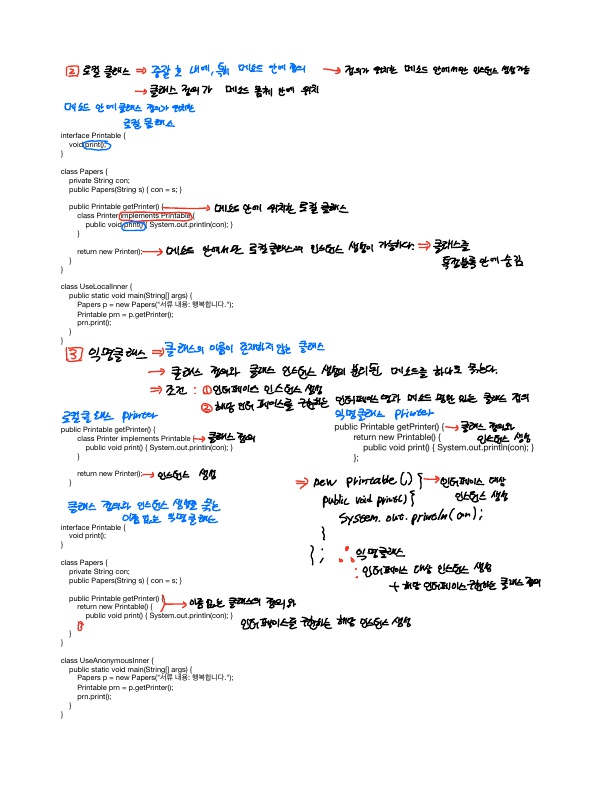 ② 로컬 클래스 ⇒ 중괄호 내에, 특히 메소드 안에 정의 → 정의가 위치한 메소드 안에서만 인스턴스 생성 가능
→ 클래스 정의가 메소드 몸체 안에 위치
메소드 안에 클래스 정의가 위치한
로컬 클래스
interface Printable {
void print();
}
class Papers {
private String con;
public Papers(String s) { con = s; }
public Printable getPrinter() { → 메소드 안에 위치하는 로컬 클래스
class Printer implements Printable {
public void print() { System.out.println(con); }
}
return new Printer(); → 메소드 안에서만 로컬클래스의 인스턴스 생성이 가능하다. ⇒ 클래스를
특정블록 안에 숨김
}
}
class UseLocalInner {
public static void main(String[] args) {
Papers p = new Papers("서류 내용: 행복합니다.");
Printable prn = p.getPrinter();
prn.print();
}
}
③ 익명클래스 ⇒ 클래스의 이름이 존재하지 않는 클래스
→ 클래스 정의와 클래스 인스턴스 생성의 분리된 메소드를 하나로 묶는다.
⇒ 조건 : ① 인터페이스 인스턴스 생성
② 해당 인터페이스를 구현하는 인터페이스명과 메소드 만 있는 클래스 정의
로컬클래스 Printer
public Printable getPrinter() {
class Printer implements Printable { → 클래스 정의
public void print() { System.out.println(con); }
}
return new Printer(); → 인스턴스 생성
}
익명클래스 Printer
public Printable getPrinter() { → 클래스 정의와
return new Printable() { 인스턴스 생성
public void print() { System.out.println(con); }
};
⇒ new Printable() { → 인터페이스 대상
인스턴스 생성
public void print() {
System.out.println(con);
}
};
∴ 익명클래스
: 인터페이스 대상 인스턴스 생성
+ 해당 인터페이스구현하는 클래스 정의
클래스 정의와 인스턴스 생성을 묶는
이름 없는 익명클래스
interface Printable {
void print();
}
class Papers {
private String con;
public Papers(String s) { con = s; }
public Printable getPrinter() {
return new Printable() { → 이름 없는 클래스의 정의와
public void print() { System.out.println(con); }
인터페이스를 구현하는 해당 인스턴스 생성
}
}
}
class UseAnonymousInner {
public static void main(String[] args) {
Papers p = new Papers("서류 내용: 행복합니다.");
Printable prn = p.getPrinter();
prn.print();
}
}